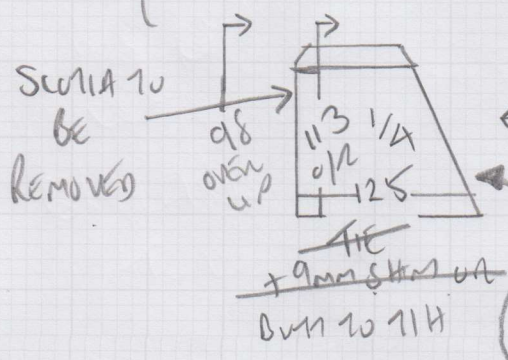 SCOTIA TO
BE
REMOVED
98
OVER
UP
113 1/4
O/R
125
TIE
+ 9mm SHIM OR
BUTT TO T/H